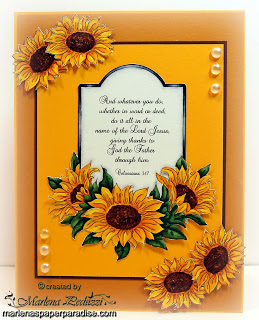 And whatever you do,
whether in word or deed,
do it all in the
name of the Lord Jesus,
giving thanks to
God the Father
through him.
Colossians 3:17
©created by
Marlena Peduzzi
marlenaspaperparadise.com